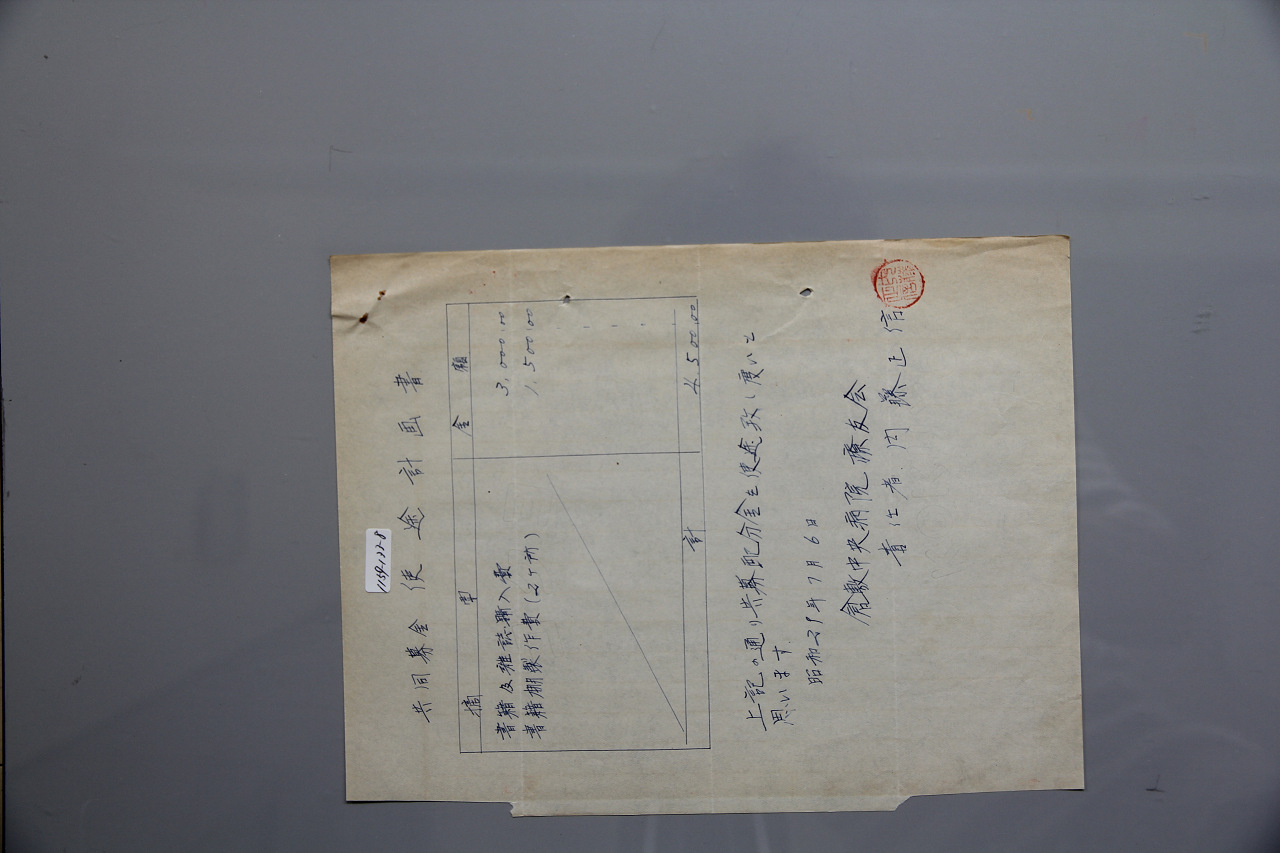 1154-122-8
共同募金使途計画書
摘要 金額
書籍及雑誌購入費 3,000.00
書籍棚製作費(2ケ所) 1,500.00
計 4,500.00
上記の通り共募配分金を使途致し度いと
思います.
昭和29年7月6日
倉敷中央病院療友会
責任者.内藤正信